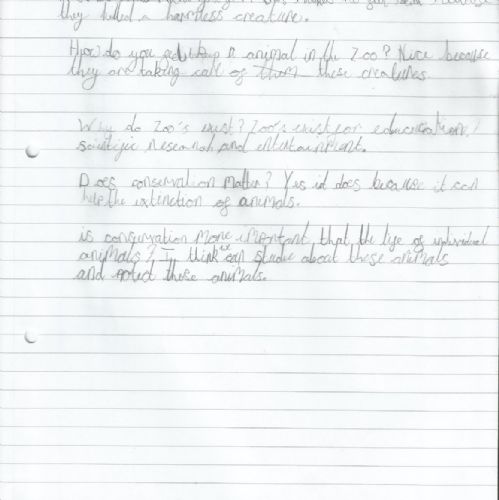 they killed a harmless creature.
How do you feel animal in the Zoo? Nice because
they are taking call of them these creatures
Why do Zoo's exist? Zoo's exist for education,
scientific research and entertainment.
Does conservation matter? Yes it does because it can
help the extinction of animals.
is conservation more imortant that the life of individual
animals? I think can studie about these animals
and these animals.